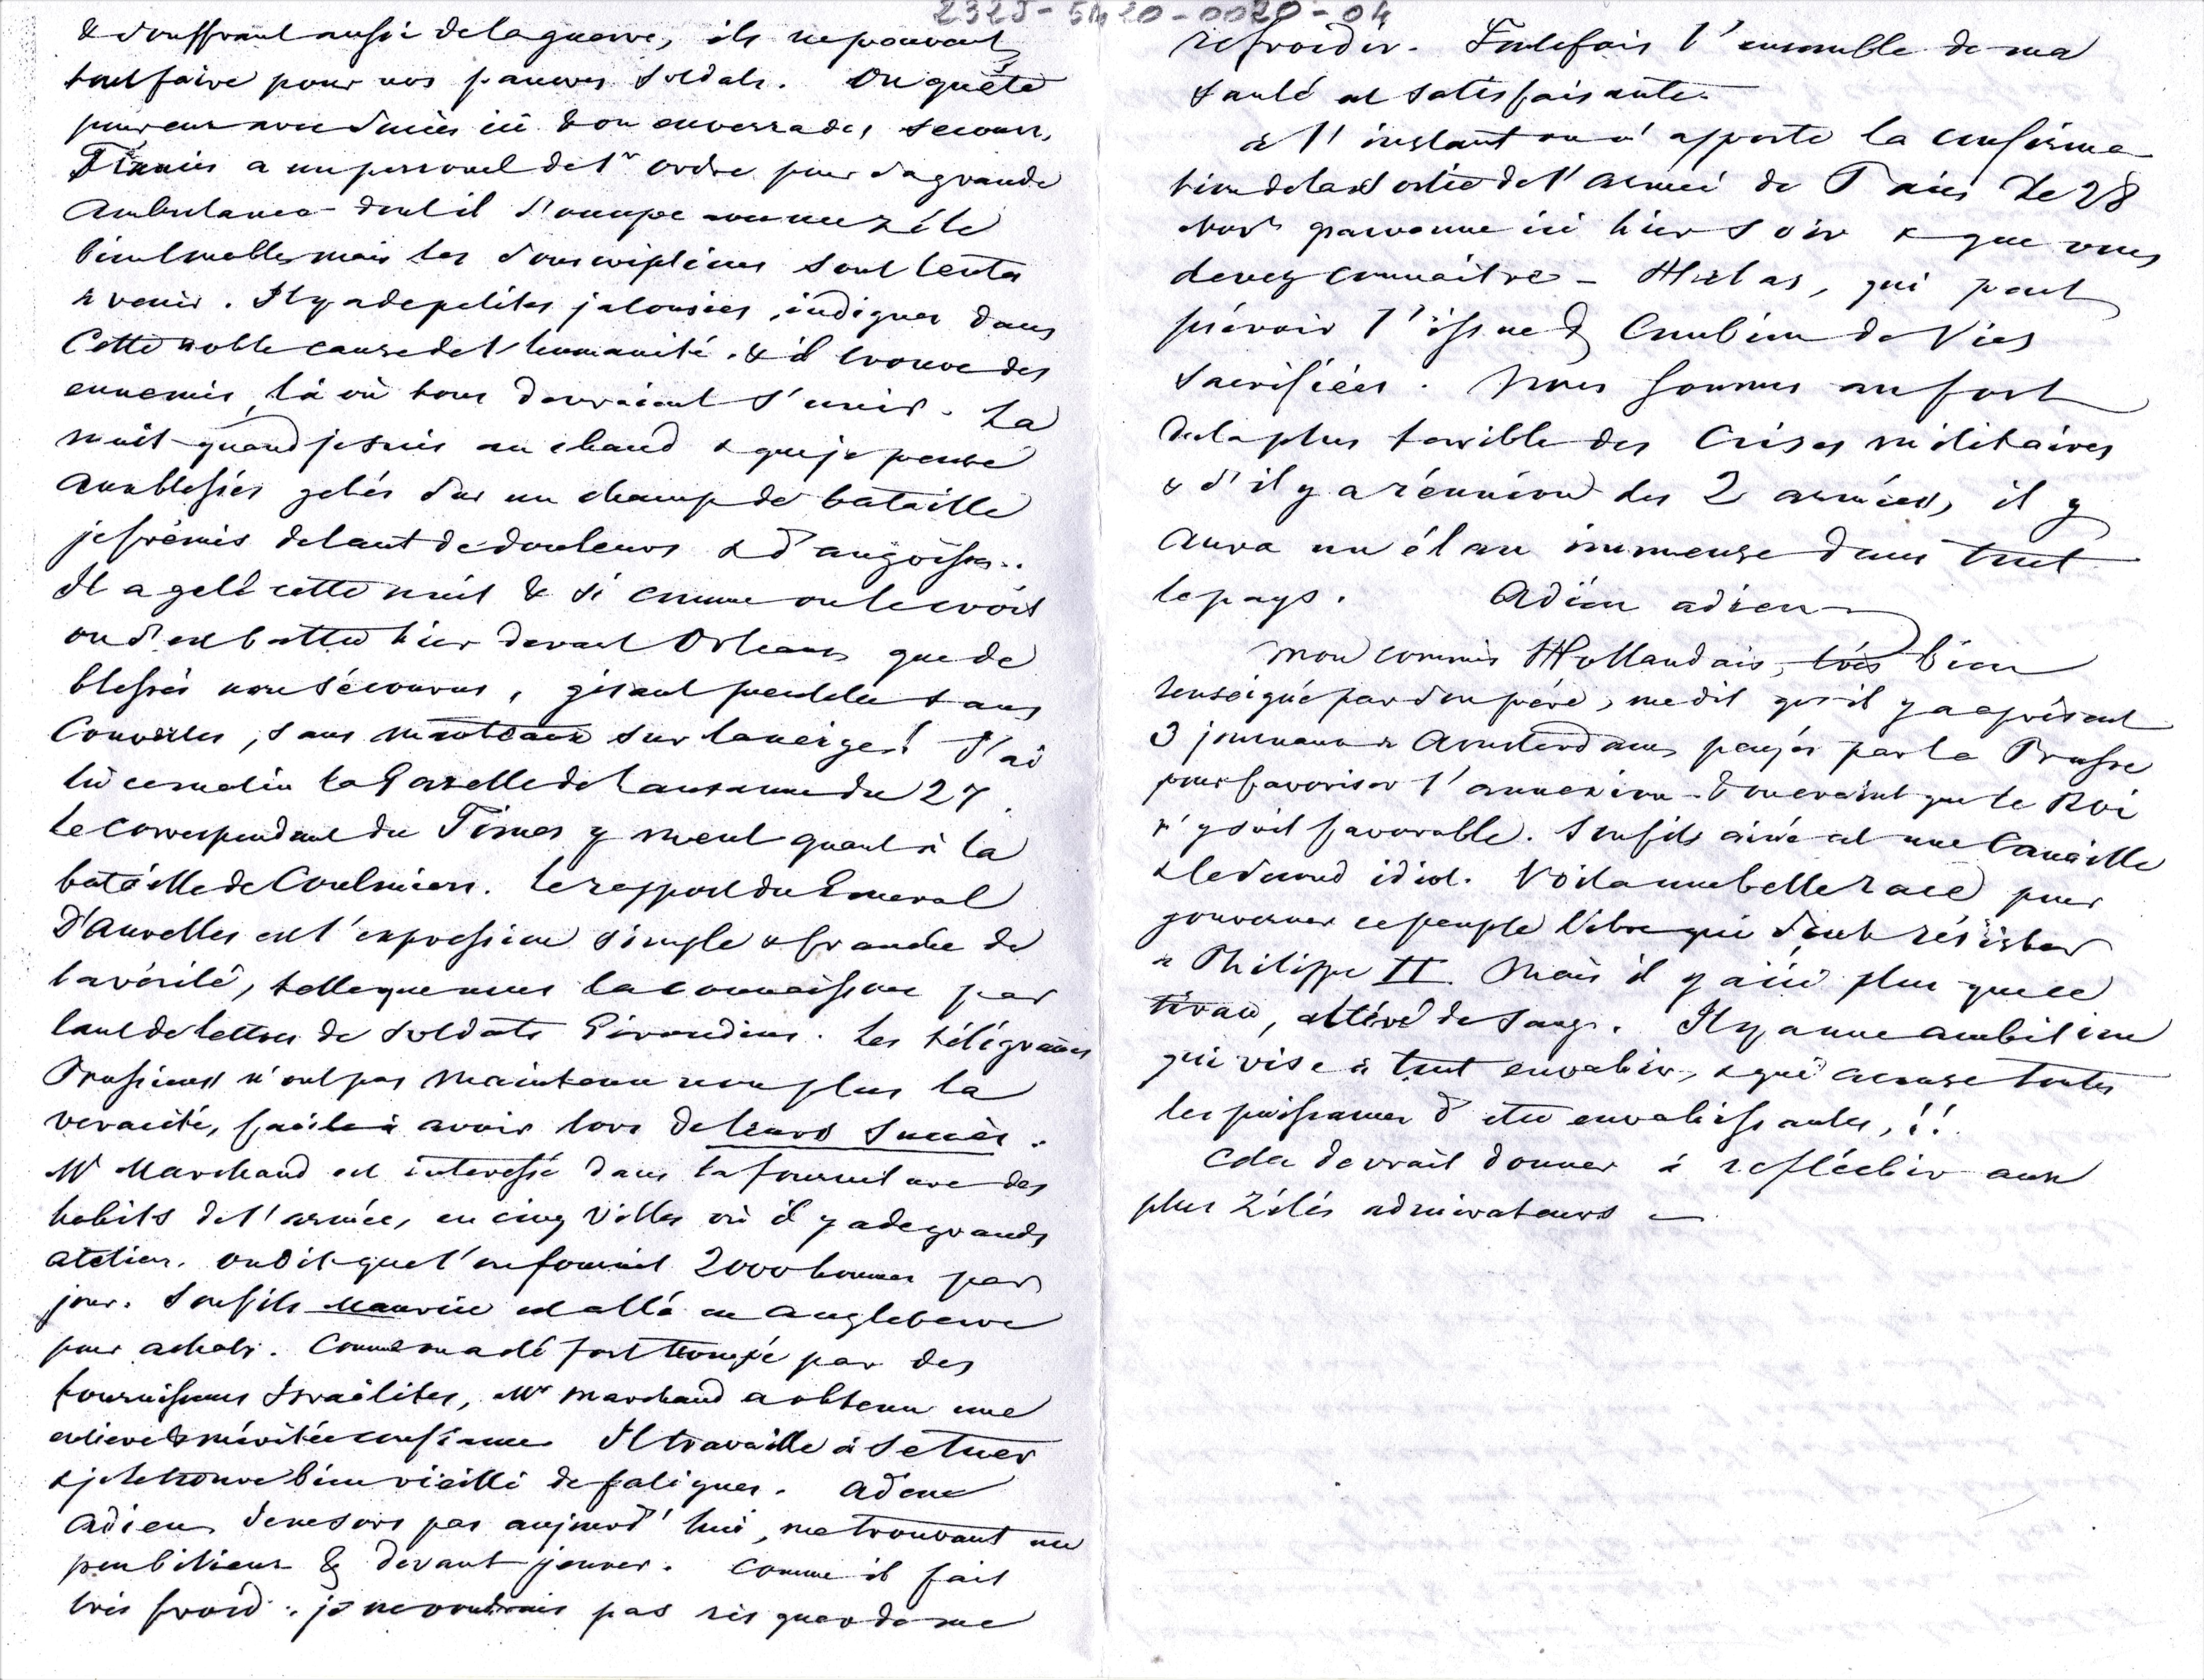 232J-5420-0020-04
& souffrant aussi de la guerre, ils ne peuvent
tout faire pour nos pauvres soldats. On quête
pour eux avec succès ici & on enverra des secours,
Francis a un personnel de 1r ordre pour sa grande
Ambulance dont il s'occupe avec un zèle
mais les souscriptions sont lentes
à venir. Il y a de petites jalousies, indignes dans
Cette noble cause de l'humanité. & il trouve des
ennemis, là où tous devraient s'unir. La
nuit quand je suis au chaud & que je pense
aux blessés gelés sur un champ de bataille
je frémis de tant de douleurs & d'angoisses..
Il a gelé cette nuit & si comme on le croit
on s'est battu hier devant Orleans que de
blessés non sécourus, gisant sans
Couvertes, sans manteaux sur la neige! J'ai
lù ce matin la Gazette de Lausanne du 27.
Le Correspondant du Times y ment quant à la
bataille de Coulmiers. Le rapport du General
D'Aurelles est l'expression simple & franche de
la vérité, telle que nous la connaissons par
tant de lettres de soldats Girondins. Les télégrames
Prussiens n'ont pas maintenu non plus la
veracité, facile à avoir lors de leurs succès.
Mr Marchand est interessé dans la fourniture des
habits de l'armée, en cinq Villes où il y a de grands
atéliers. on dit que l'on fournit 2000 hommes par
jour. Son fils Maurice est allé en Angleterre
pour achats. Comme on a été fort trompé par des
fournisseurs Israëlites, Mr Marchand a obtenu une
entiere & méritée confiance Il travaille à se tuer
& je le trouve bien vieilli de fatigues. Adieu
Adieu Je ne sors pas aujourd'hui, me trouvant un
peu bilieux & devant jeuner. Comme il fait
très froid. je ne voudrais pas risquer de me
refroidir. Toutefois l'ensemble de ma
santé est satisfaisante.
à l'instant on m'apporte la confirma-
tion de la sortie de l'armée de Paris le 28
Novr parvenue ici hier soir & que vous
devez connaître - Hélas, qui peut
prévoir l'issue & Combien de Vies
sacrifiées. Nous sommes au fort
de la plus terrible des Crises militaires
& s'il y a réunion des 2 armées, il y
Aura un élan immense dans tout
le pays. Adieu adieu
Mon commis Hollandais, très bien
renseigné par son père, me dit qu'il y a à présent
3 journaux à Amsterdam payés par la Prusse
pour favoriser l'annexion & on craint que le Roi
n'y soit favorable. Son fils ainé est une Canaille
& le second idiot. Voila une belle race pour
gouverner ce peuple libre qui sçut résister
à Philippe II. Mais il y a ici plus que ce
tiran, altéré de sang. Il y a une ambition
qui vise à tout envahir, & qui accuse toutes
les puissances d'etre envahissantes, !!
Cela devrait donner à refléchir aux
plus zélés admirateurs